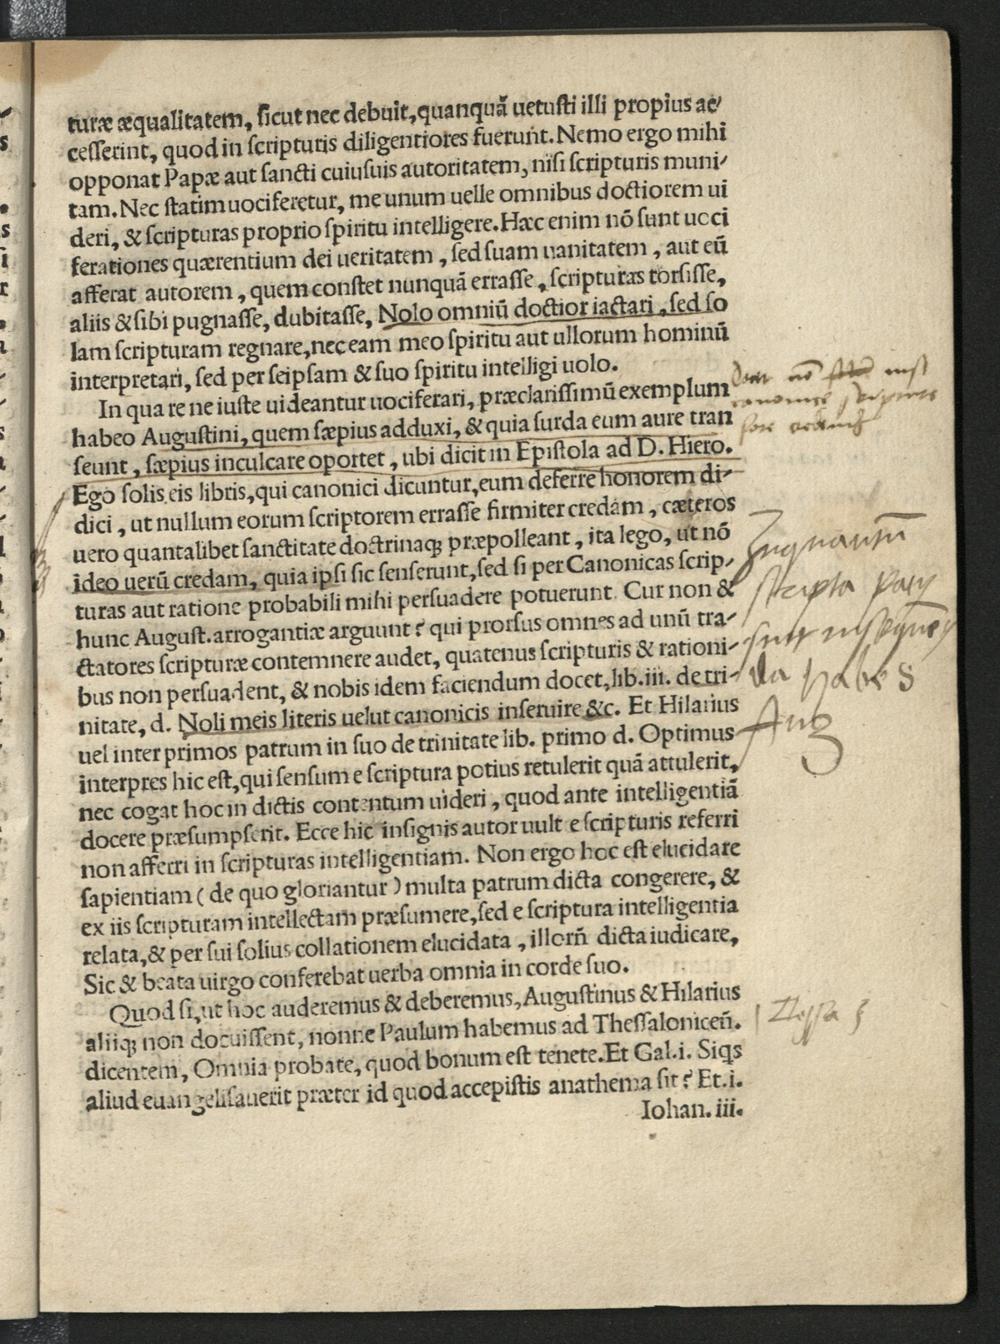 turæ æqualitatem, ſicut nec debuit, quanquã uetuſti illi propius ac/
ceſſerint, quod in ſcripturis diligentiores fuerunt. Nemo ergo mihi
opponat Papæ aut ſancti cuiuſuis autoritatem, niſi ſcripturis muni/
tam. Nec ſtatim uociferetur, me unum uelle omnibus doctiorem ui
deri, & ſcripturas proprio ſpiritu intelligere. Hæc enim nõ ſunt uoci
ferationes quærentium dei ueritatem, ſed ſuam uanitatem, aut eũ
afferat autorem, quem conſtet nunquã erraſſe, ſcripturas torſiſſe,
aliis & ſibi pugnaſſe, dubitaſſe, Nolo omniũ doctior iactari, ſed ſo
lam ſcripturam regnare, nec eam meo ſpiritu aut ullorum hominũ
interpretari, ſed per ſeipſam & ſuo ſpiritu intelligi uolo.
In qua re ne iuſte uideantur uociferari, præclariſſimũ exemplum
habeo Auguſtini, quem ſæpius adduxi, & quia ſurda eum aure tran
ſeunt, ſæpius inculcare oportet, ubi dicit in Epiſtola ad D. Hiero.
Ego ſolis eis libris, qui canonici dicuntur, eum deferre honorem di/
dici, ut nullum eorum ſcriptorem erraſſe firmiter credam, cæteros
uero quantalibet ſanctitate doctrinaqꝫ præpolleant, ita lego, ut nõ
ideo uerũ credam, quia ipſi ſic ſenſerunt, ſed ſi per Canonicas ſcrip/
turas aut ratione probabili mihi perſuadere potuerunt. Cur non &
hunc Auguſt. arrogantiæ arguunt? qui prorſus omnes ad unũ tra/
ctatores ſcripturæ contemnere audet, quatenus ſcripturis & rationi/
bus non perſuadent, & nobis idem faciendum docet, lib. iii. de tri/
nitate, d. Noli meis literis uelut canonicis inſeruire &c. Et Hilarius
uel inter primos patrum in ſuo de trinitate lib. primo d. Optimus
interpres hic eſt, qui ſenſum e ſcriptura potius retulerit quã attulerit,
nec cogat hoc in dictis contentum uideri, quod ante intelligentiã
docere præſumpſerit. Ecce hic inſignis autor uult e ſcripturis referri
non afferri in ſcripturas intelligentiam. Non ergo hoc eſt elucidare
ſapientiam (de quo gloriantur) multa patrum dicta congerere, &
ex iis ſcripturam intellectam præſumere, ſed e ſcriptura intelligentia
relata, & per ſui ſolius collationem elucidata, illorũ dicta iudicare,
Sic & beata uirgo conferebat uerba omnia in corde ſuo.
Quod ſi, ut hoc auderemus & deberemus, Auguſtinus & Hilarius
aliiqꝫ non docuiſſent, nonne Paulum habemus ad Theſſaloniceñ.
dicentem, Omnia probate, quod bonum eſt tenete. Et Gal. i. Siqs
aliud euangeliſauerit præter id quod accepiſtis anathema ſit? Et. i.
Iohan. iii.
scripta
habes
Aug